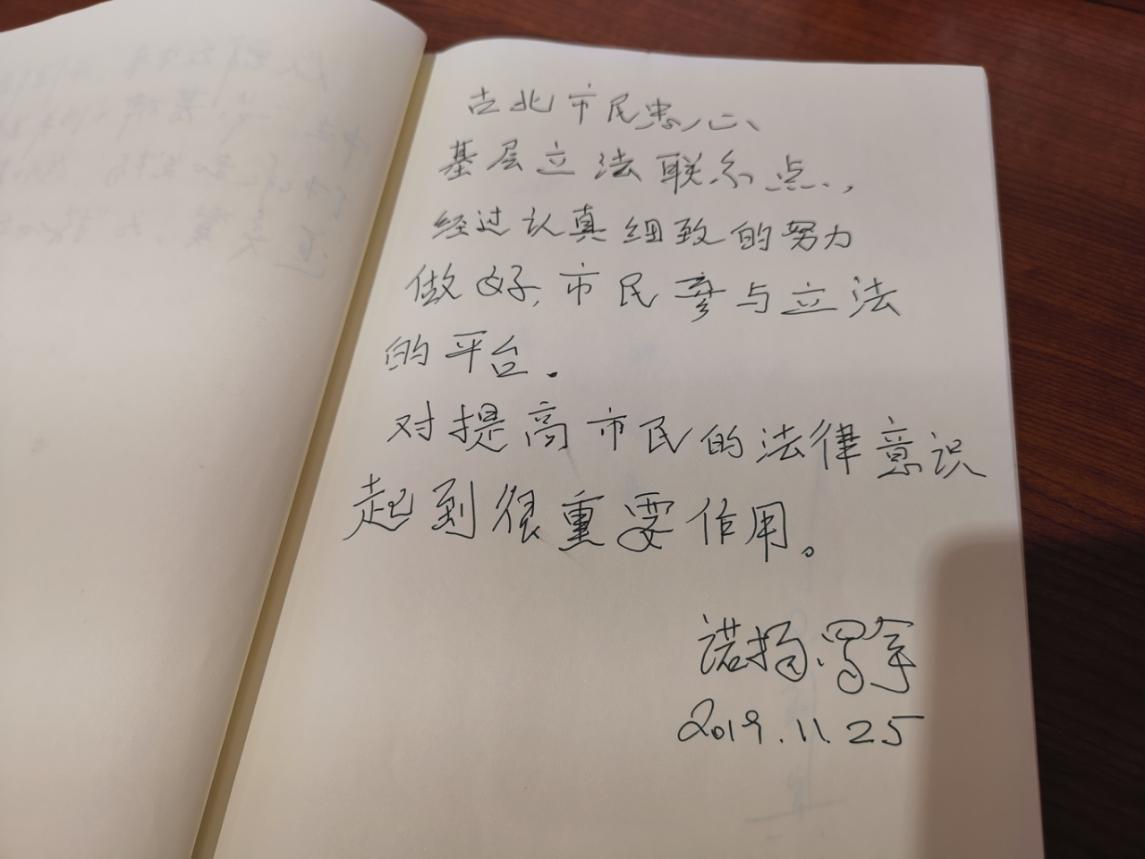 古北市民忠心、
基层立法联系点,
经过认真细致的努力
做好,市民参与立法
的平台.
对提高市民的法律意识
起到很重要作用。
诺扬·罗拿
2019.11.25